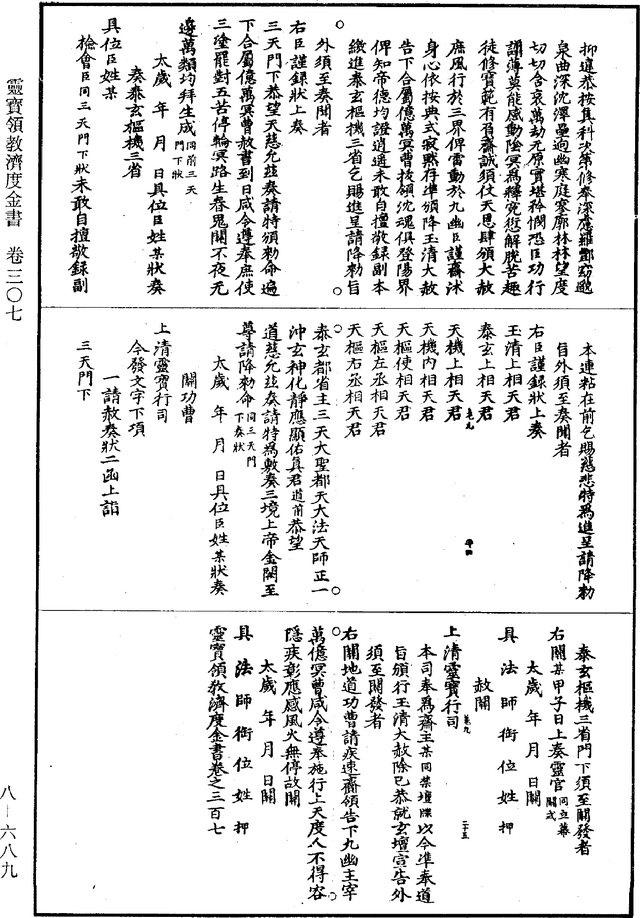 抑遏恭按具科次第修奉深應羅酆窈邈
泉曲深沈澤壘逈幽寒庭寥廓林林望度
切切含哀萬劫元原實堪矜憫恐臣功行
譾薄莫能感動陰冥爲釋冤愆解脫苦趣
徒修寶範有負齋誠須仗天恩肆頒大赦
庶風行於三界俾雷動於九幽臣謹齋沐
身心依按典式寂默存準頒降玉清大赦
告下合屬億萬冥曹拔領沈魂俱登陽界
俾知帝德均證逍遙未敢自擅敬録副本
繳進泰玄樞機三省乞賜進呈請降勑旨
外須至奏聞者
右臣謹録狀上奏
三天門下恭望天慈允兹奏請特頒勑命遍
下合屬億萬冥曹赦書到日咸令遵奉庶使
三塗罷對五苦停輪冥路生春鬼關不夜无
邊萬類均拜生成同前三天門下狀
太歲　年　月　日具位臣姓某狀奏
奏泰玄樞機三省
具位臣姓某
檢會臣同三天門下狀未敢自擅敬録副
本連粘在前乞賜慈悲特爲進呈請降勑
旨外須至奏聞者
右臣謹録狀上奏
玉清上相天君
泰玄上相天君
天機上相天君
天機内相天君
天樞使相天君
天樞左丞相天君
天樞右丞相天君
泰玄都省主三天大聖都天大法天師正一
沖玄神化靜應顯佑真君道前恭望
道慈允兹奏請特爲敷奏三境上帝金闕至
尊請降勑命同三天門下奏狀
太歲　年　月　日具位臣姓某狀奏
關功曹
上清靈寶行司
今發文字下項
一請赦奏狀二函上詣
三天門下
泰玄樞機三省門下須至關發者
右關某甲子日上奏靈官同立幕關式
太歲　年　月　日關
具　法　師　銜　位　姓　押
赦關
上清靈寶行司
本司奉爲齋主某同禁壇牒以今準奉道
旨頒行玉清大赦除已恭就玄壇宣告外
須至關發者
右關地道功曹請疾速齋領告下九幽主宰
萬億冥曹咸令遵奉施行上天度人不得容
隱疾彰應感風火無停故關
太歲　年　月　日關
具　法　師　銜　位　姓　押
靈寶領教濟度金書卷之三百七
靈寶領教濟度金書　卷三〇七
八－六八九